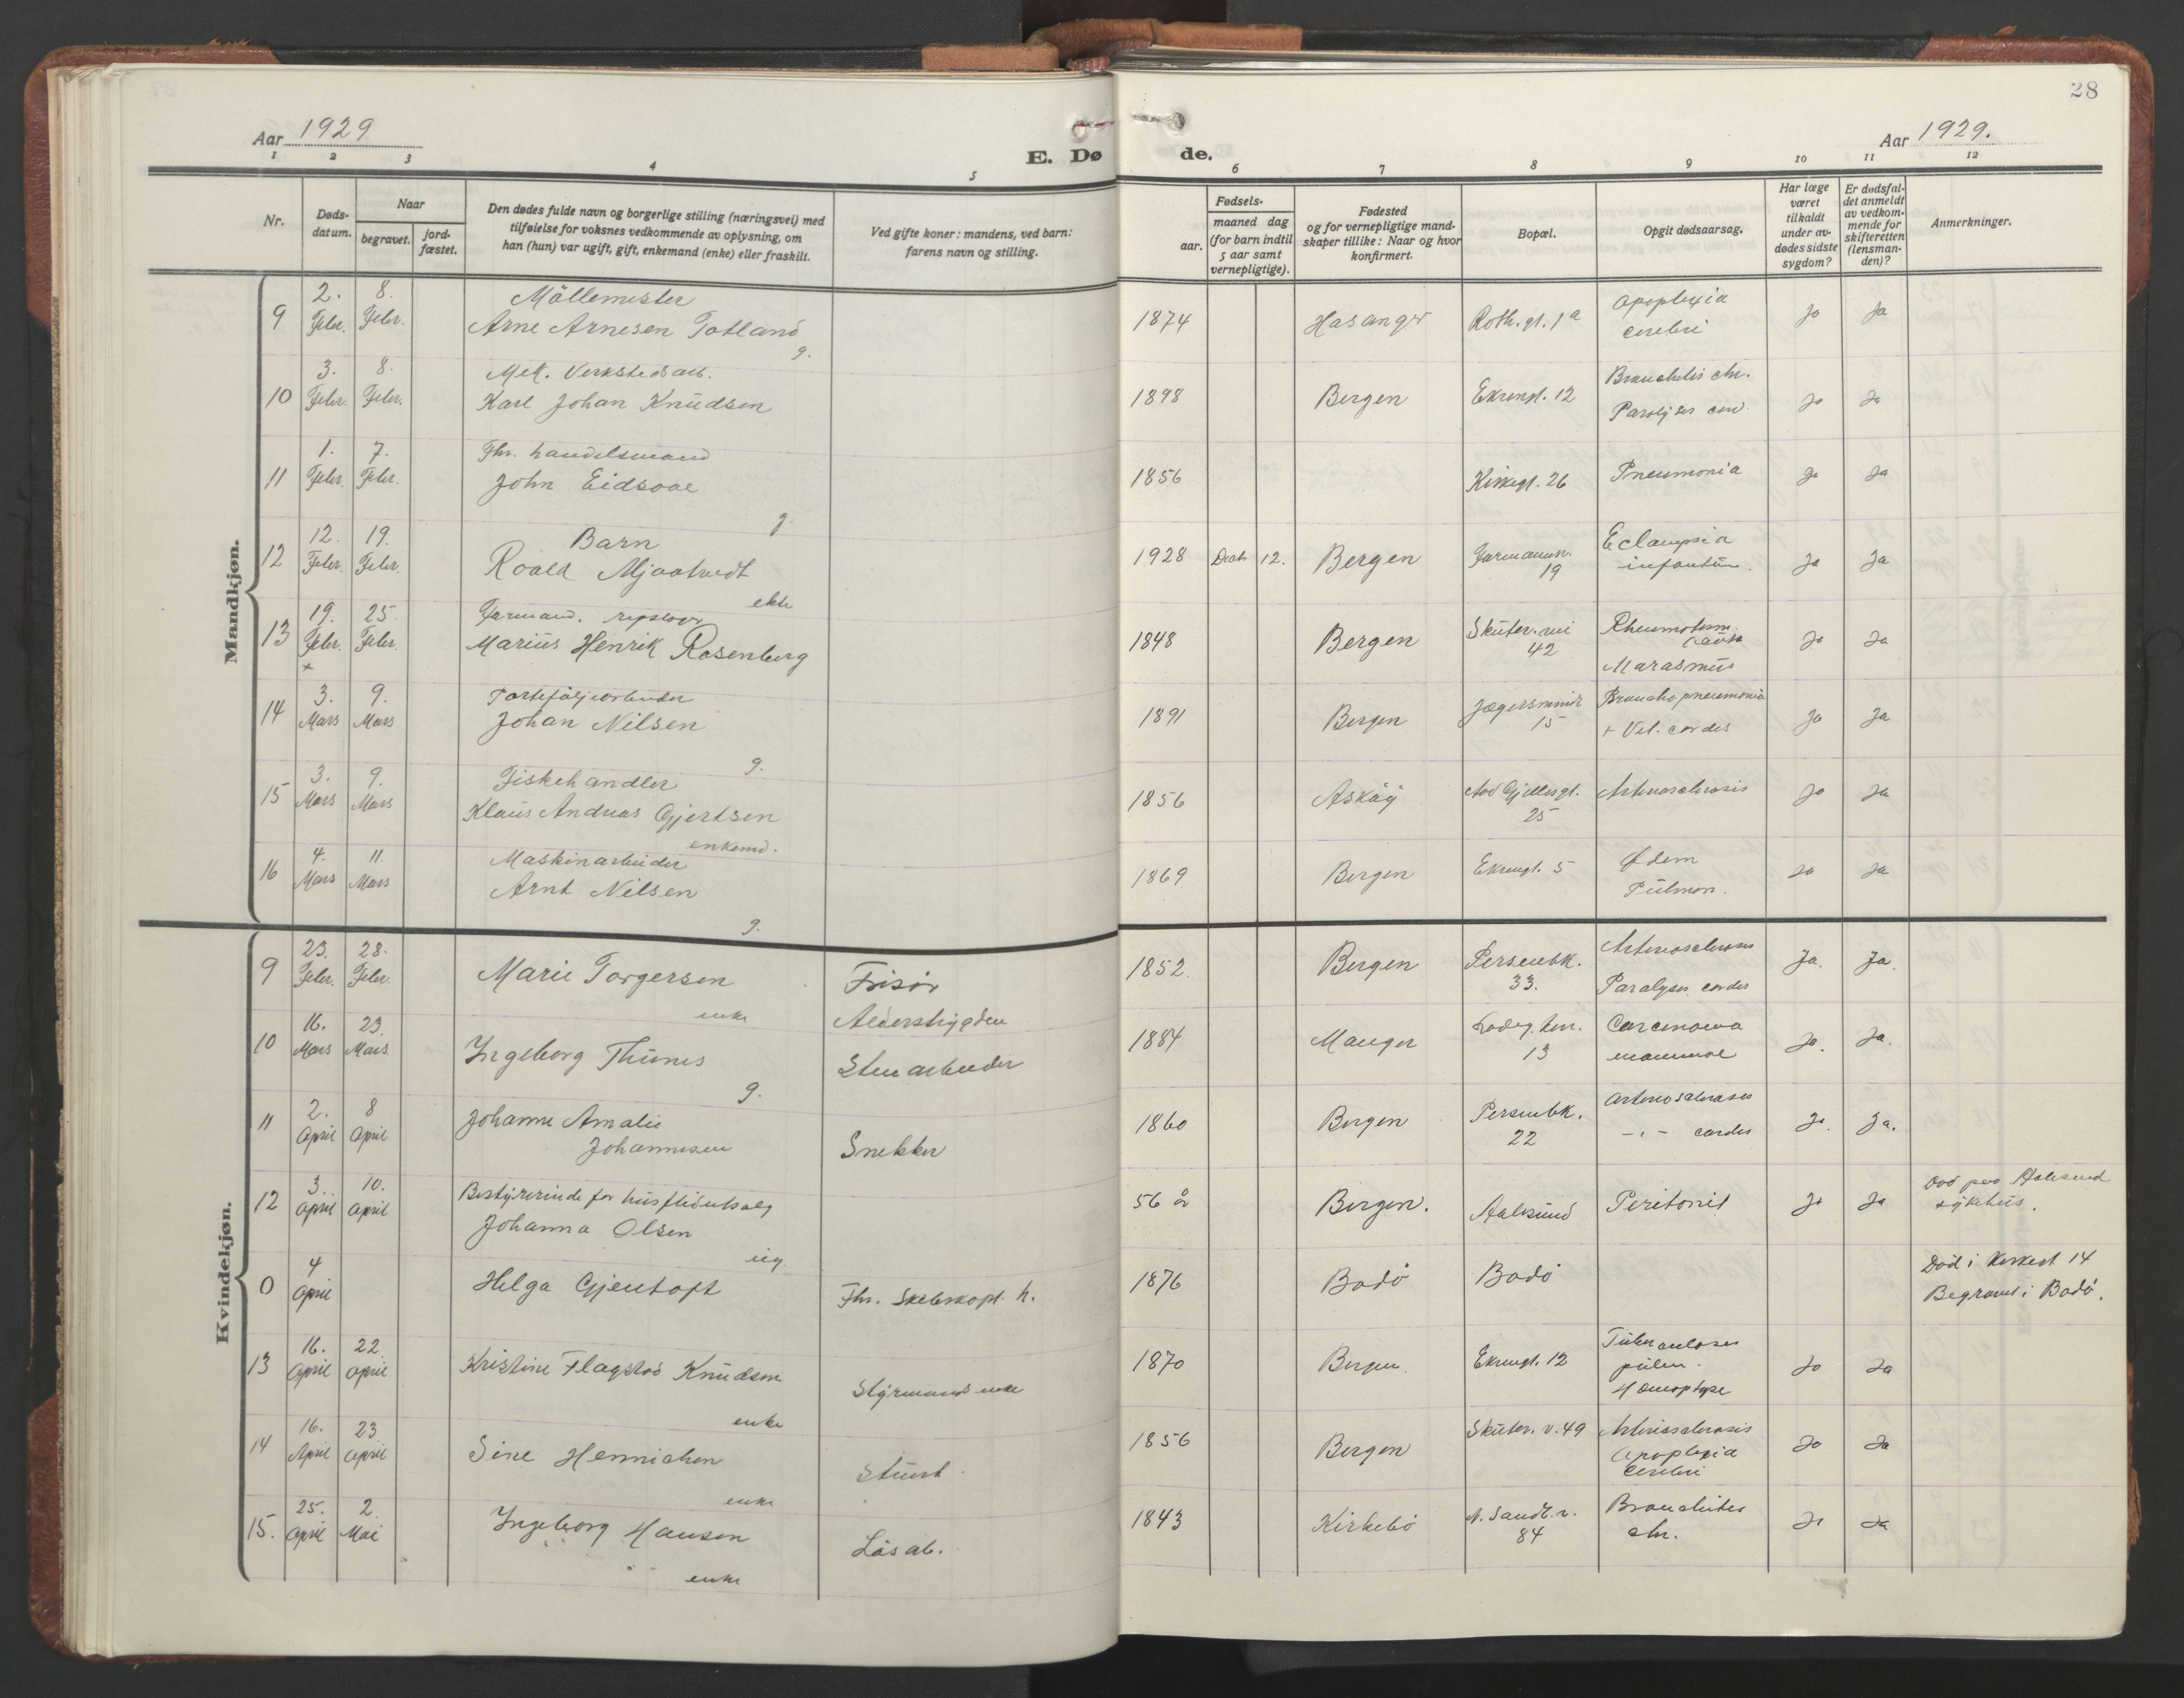 28
Aar 1929
Aar 1929.
E. Døde.
1 2 3 4 5 6 7 8 9 10 11 12
Nr.
Døds-datum.
Naar
begravet.
jord-fæstet.
Den dødes fulde navn og borgerlige stilling (næringsvei) med
tilføielse for voksnes vedkommende av oplysning, om
han (hun) var ugift, gift, enkemand (enke) eller fraskilt.
Ved gifte koner: mandens, ved barn:
farens navn og stilling.
Fødsels-
aar.
maaned dag
(for barn indtil
5 aar samt
vernepligtige).
Fødested
og for vernepligtige mand-
skaper tillike: Naar og hvor
konfirmert.
Bopæl.
Opgit dødsaarsag.
Har læge
været
tilkaldt
under av-
dødes sidste
sygdom?
Er dødsfal-
det anmeldt
av vedkom-
mende for
skifteretten
(lensman-
den)?
Anmerkninger.
Mandkjøn.
9 2. Febr. 8. Febr. Möllemester
Arne Arnesen Totland g. 1874 Rosth.gt. 1a Apoplexia cerebri Ja Ja
10 3. Febr. 8. Febr. Mek. Verkstedsarb.
Karl Johan Knudsen 1898 Bergen Ekrengt. 12 Bronchitis chr. Ja Ja
11 1. Febr. 7. Febr. Fhv. handelsmand
John Eidsaae g. 1856 Kirkegt. 26 Pneumonia Ja Ja
12 12. Febr. 19. Febr. Barn
Roald Mjaatvedt ekte 1928 12. Bergen 19 Eclampsia infantum. Ja Ja
13 19. Febr. + 25. Febr. Formand.
Marius Henrik Rosenberg 1848 Bergen Skuter.vei 42 Rheumatism.
Marasmus Ja Ja
14 3. Mars 9. Mars Porteføljearbeider
Johan Nilsen g. 1891 Bergen 15 Bronchopneumonia
+ Vit. cordis Ja Ja
15 3. Mars 9. Mars Fiskehandler
Klaus Andreas Gjertsen enkemd. 1856 Asköy 25 Arteriosclerosis Ja Ja
16 4. Mars 11. Mars Maskinarbeider
Arnt Nilsen g. 1869 Bergen Ekrengt. 5 Ødem Pulmon. Ja Ja
Kvindekjøn.
9 23. Febr. 28. Febr. Marie Torgersen enke Frisör 1852. Bergen Persenbk. 33. Arteriosclerosis
Paralysis cordis Ja. Ja.
10 16. Mars 23. Mars Ingeborg Thunes g. Stenarbeider 1884 Manger 13 Carcinoma mammae Ja. Ja.
11 2. April 8 April Johanne Amalie
Johannesen Snekker 1860 Bergen Persenbk. 22 Arteriosclerosis
-"- cordis Ja. Ja.
12 3. April 10. April Bestyrerinde for husflidutsalg
Johanna Olsen ug. 56 år Bergen. Aalesund Peritonit Ja Ja Död paa Aalesund sykehus.
0 4 April Helga Gjentoft 1876 Bodö Bodö Död i Kirkegt 14
Begravet i Bodö.
13 16. April 22 April Kristine Flagstad Knudsen enke Styrmands enke 1870 Bergen. Ekrengt. 12 Tuberculosis pulm.
Hæmoptyse Ja Ja
14 16. April 23 April Sine Henrichsen enke 1856 Bergen Skuter. v. 49 Arteriosclerosis
Apoplexia cerebri Ja Ja
15. 25. April 2. Mai Ingeborg Hansen enke Lösarb. 1843 Kirkebö N. Sandb.v. 84 Bronchites chr. Ja Ja